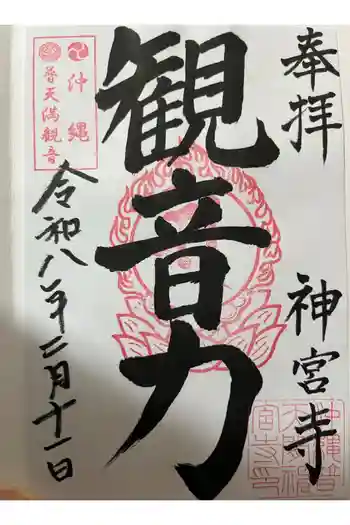 奉拝
神宮寺
観音力
沖縄
普天満観音
令和八年二月十一日